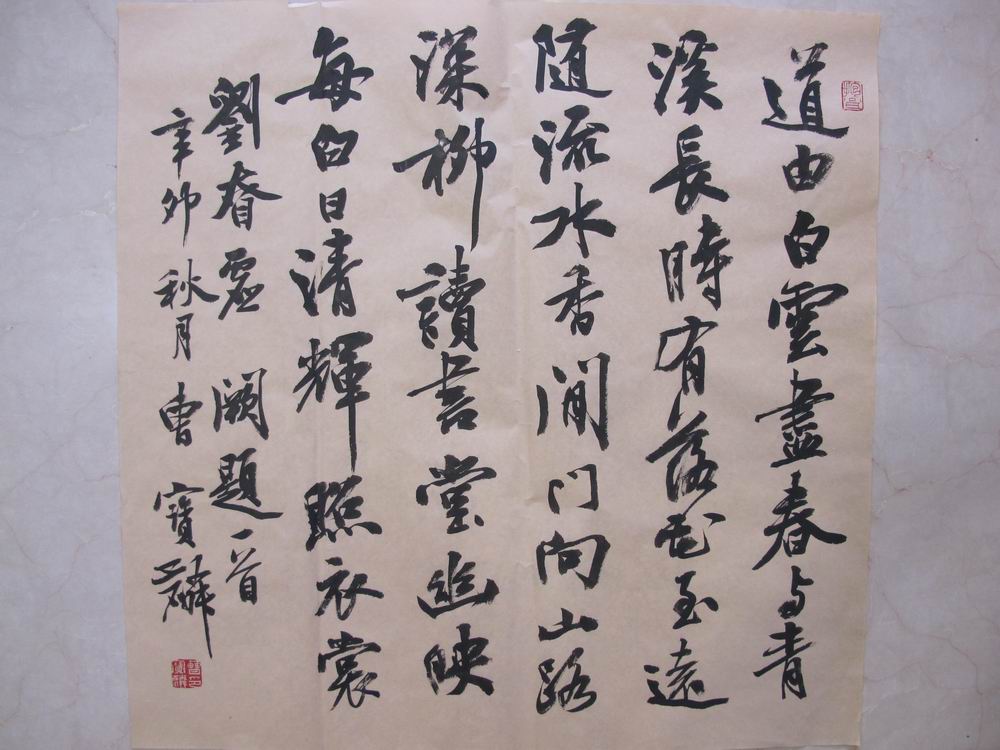 道由白雲盡春与青
溪長時有落花至遠
随流水香閒門向山路
深柳讀書堂幽映
每白日清輝照衣裳
劉眘虛 闕題一首
辛卯秋月曹寶麟